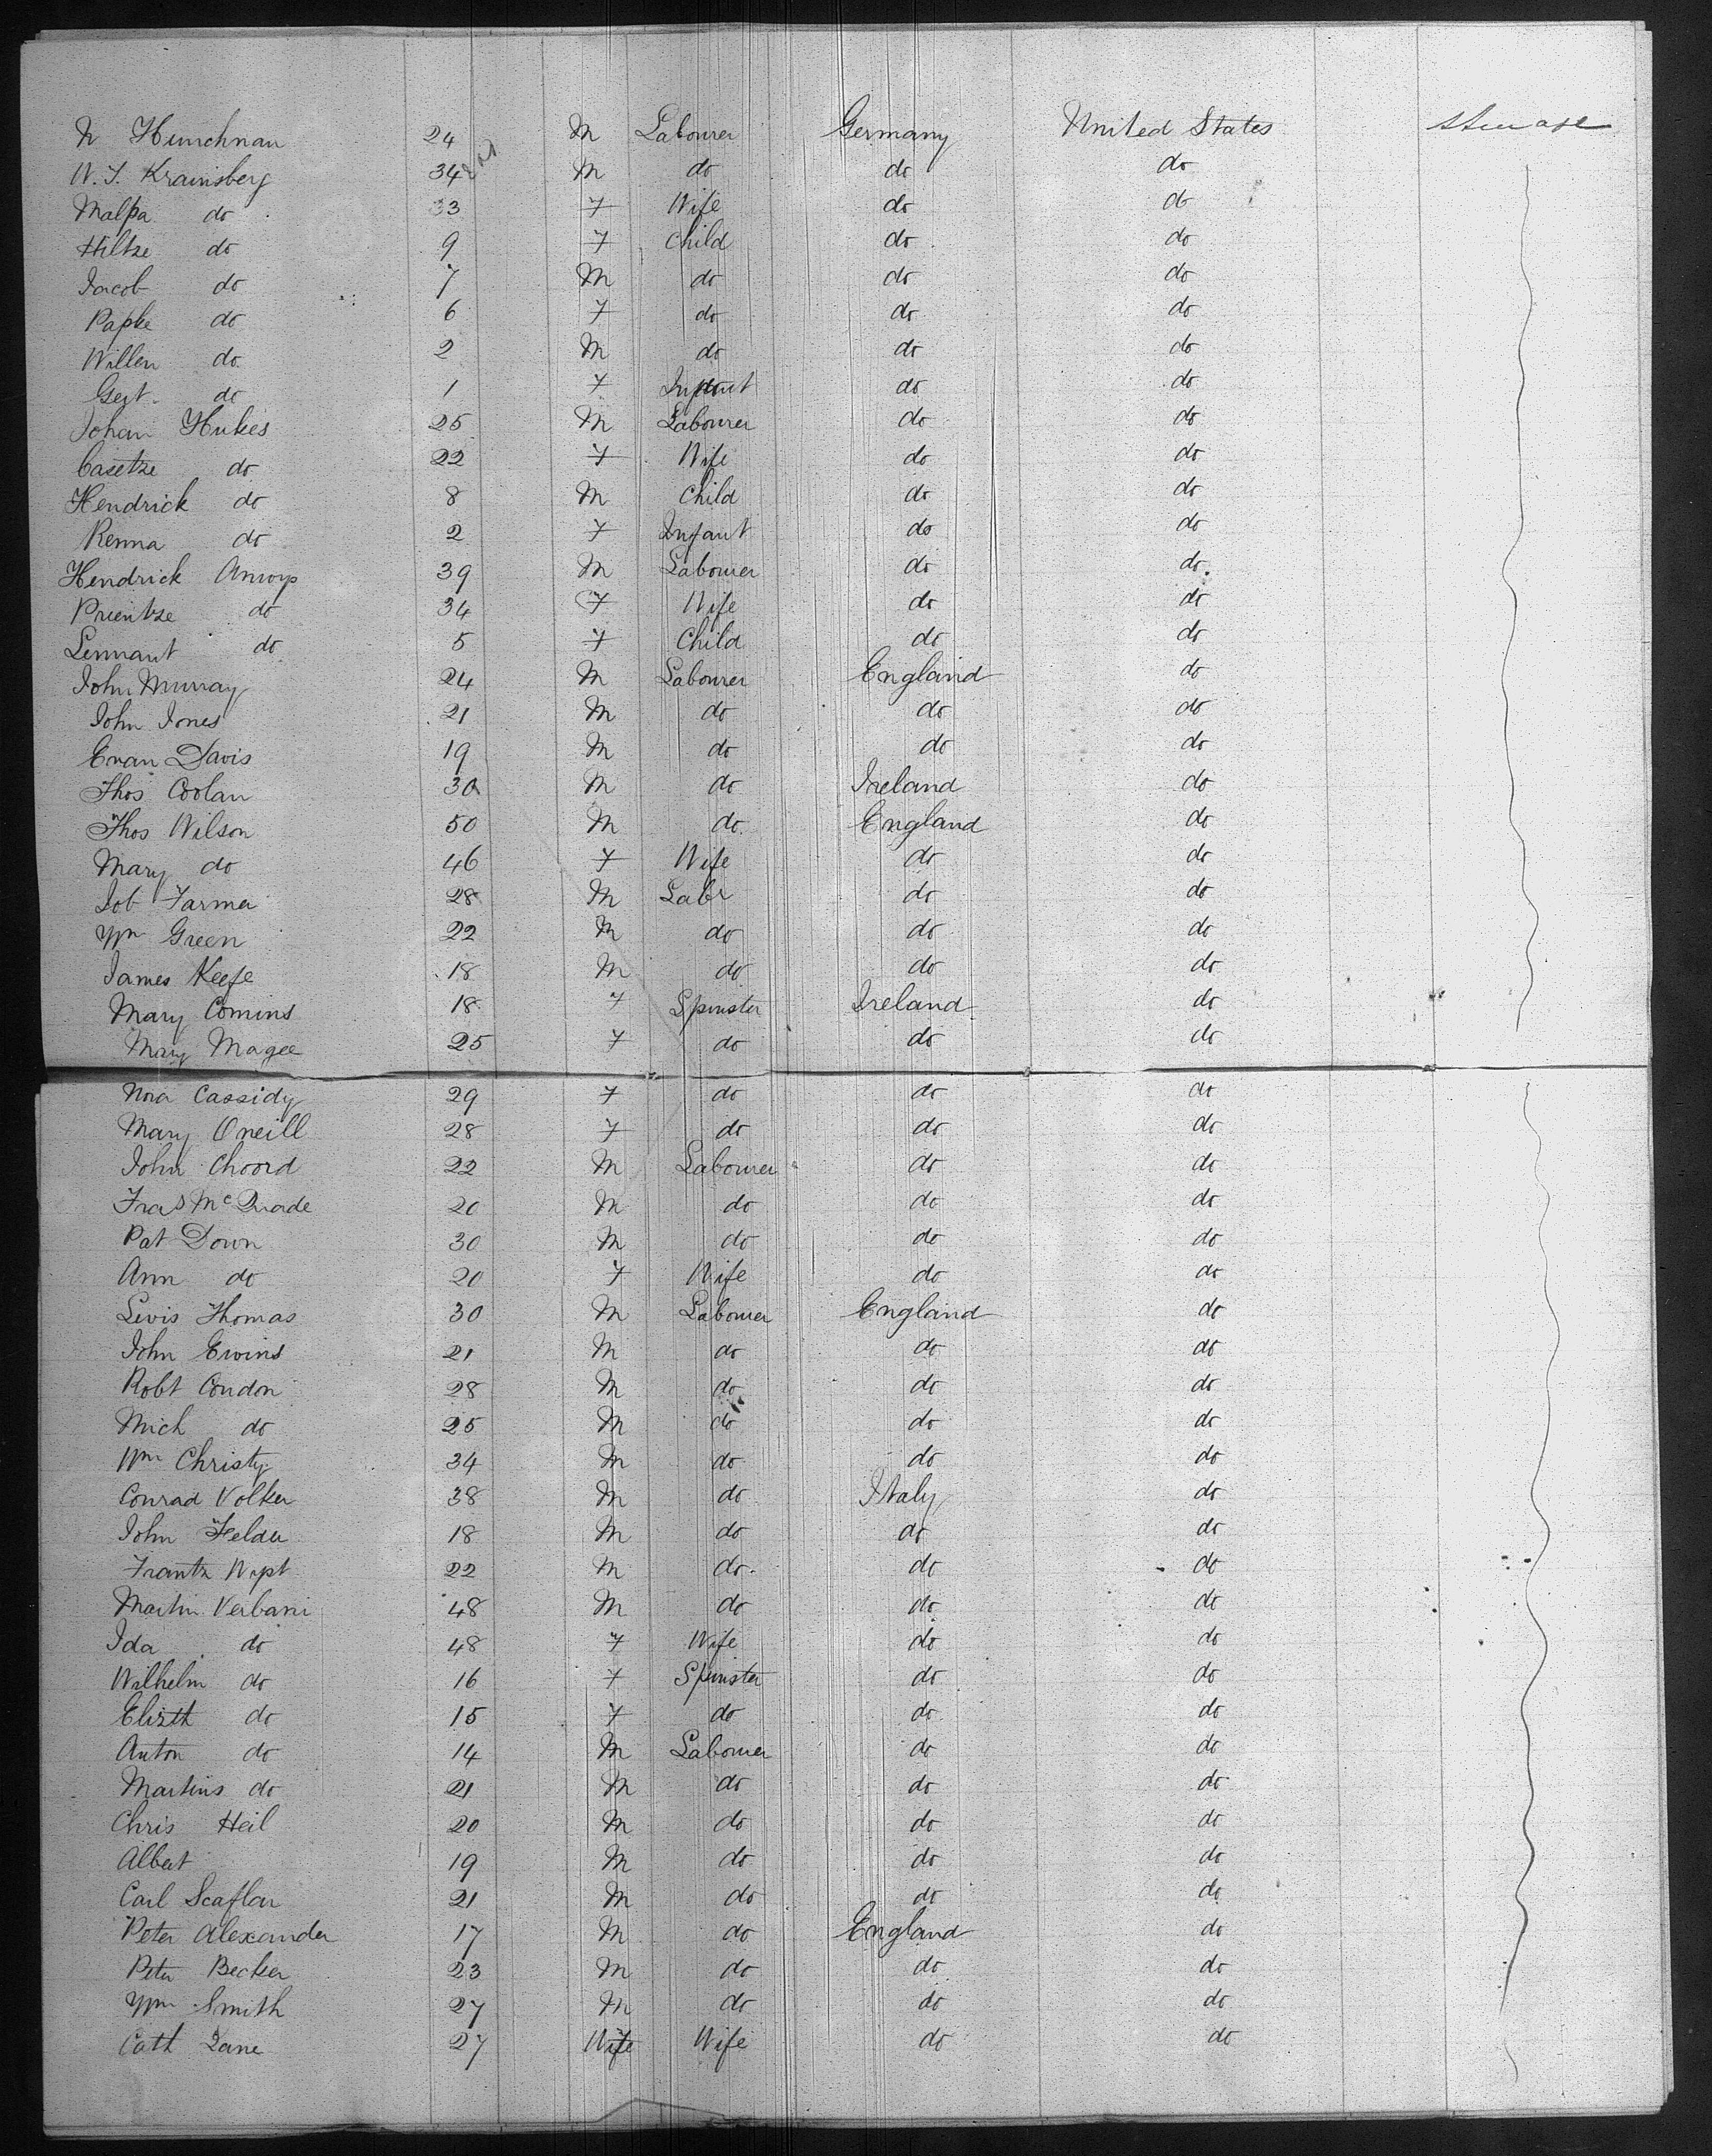 N Hunchman 24 M Labourer Germany United States Steerage
W. J. Krainsberg 34 M do do do
Malpa do 33 F Wife do do
Hiltze do 9 F Child do do
Jacob do 7 M do do do
Papke do 6 F do do do
Willen do 2 M do do do
Gert. do 1 F Infant do do
Johan Hukes 25 M Labourer do do
Casetze do 22 F Wife do do
Hendrick do 8 M Child do do
Renna do 2 F Infant do do
Hendrick 39 M Labourer do do
Prientze do 34 F Wife do do
Lennant do 5 F Child do do
John Murray 24 M Labourer England do
John Jones 21 M do do do
Evan Davis 19 M do do do
Thos Coolan 30 M do Ireland do
Thos Wilson 50 M do England do
Mary do 46 F Wife do do
Job Farmer 28 M Labr do do
Wm Green 22 M do do do
James Keefe 18 M do do do
Mary Comins 18 F Spinster Ireland do
Mary Magee 25 F do do do
Nora Cassidy 29 F do do do
Mary Oneill 28 F do do do
John Choord 22 M Labourer do do
Fras McQuade 20 M do do do
Pat Down 30 M do do do
Ann do 20 F Wife do do
Lewis Thomas 30 M Labourer England do
John Ewins 21 M do do do
Robt Condon 28 M do do do
Mich do 25 M do do do
Wm Christy 34 M do do do
Conrad Volker 38 M do Italy do
John Felder 18 M do do do
Frantz 22 M do do do
Martin Verbani 48 M do do do
Ida do 48 F Wife do do
Wilhelm do 16 F Spinster do do
Elizth do 15 F do do do
Anton do 14 M Labourer do do
Martins do 21 M do do do
Chris Heil 20 M do do do
Albert 19 M do do do
Carl Scaflar 21 M do do do
Peter Alexander 17 M do England do
Peter Becker 23 M do do do
Wm Smith 27 M do do do
Cath Lane 27 Wife Wife do do